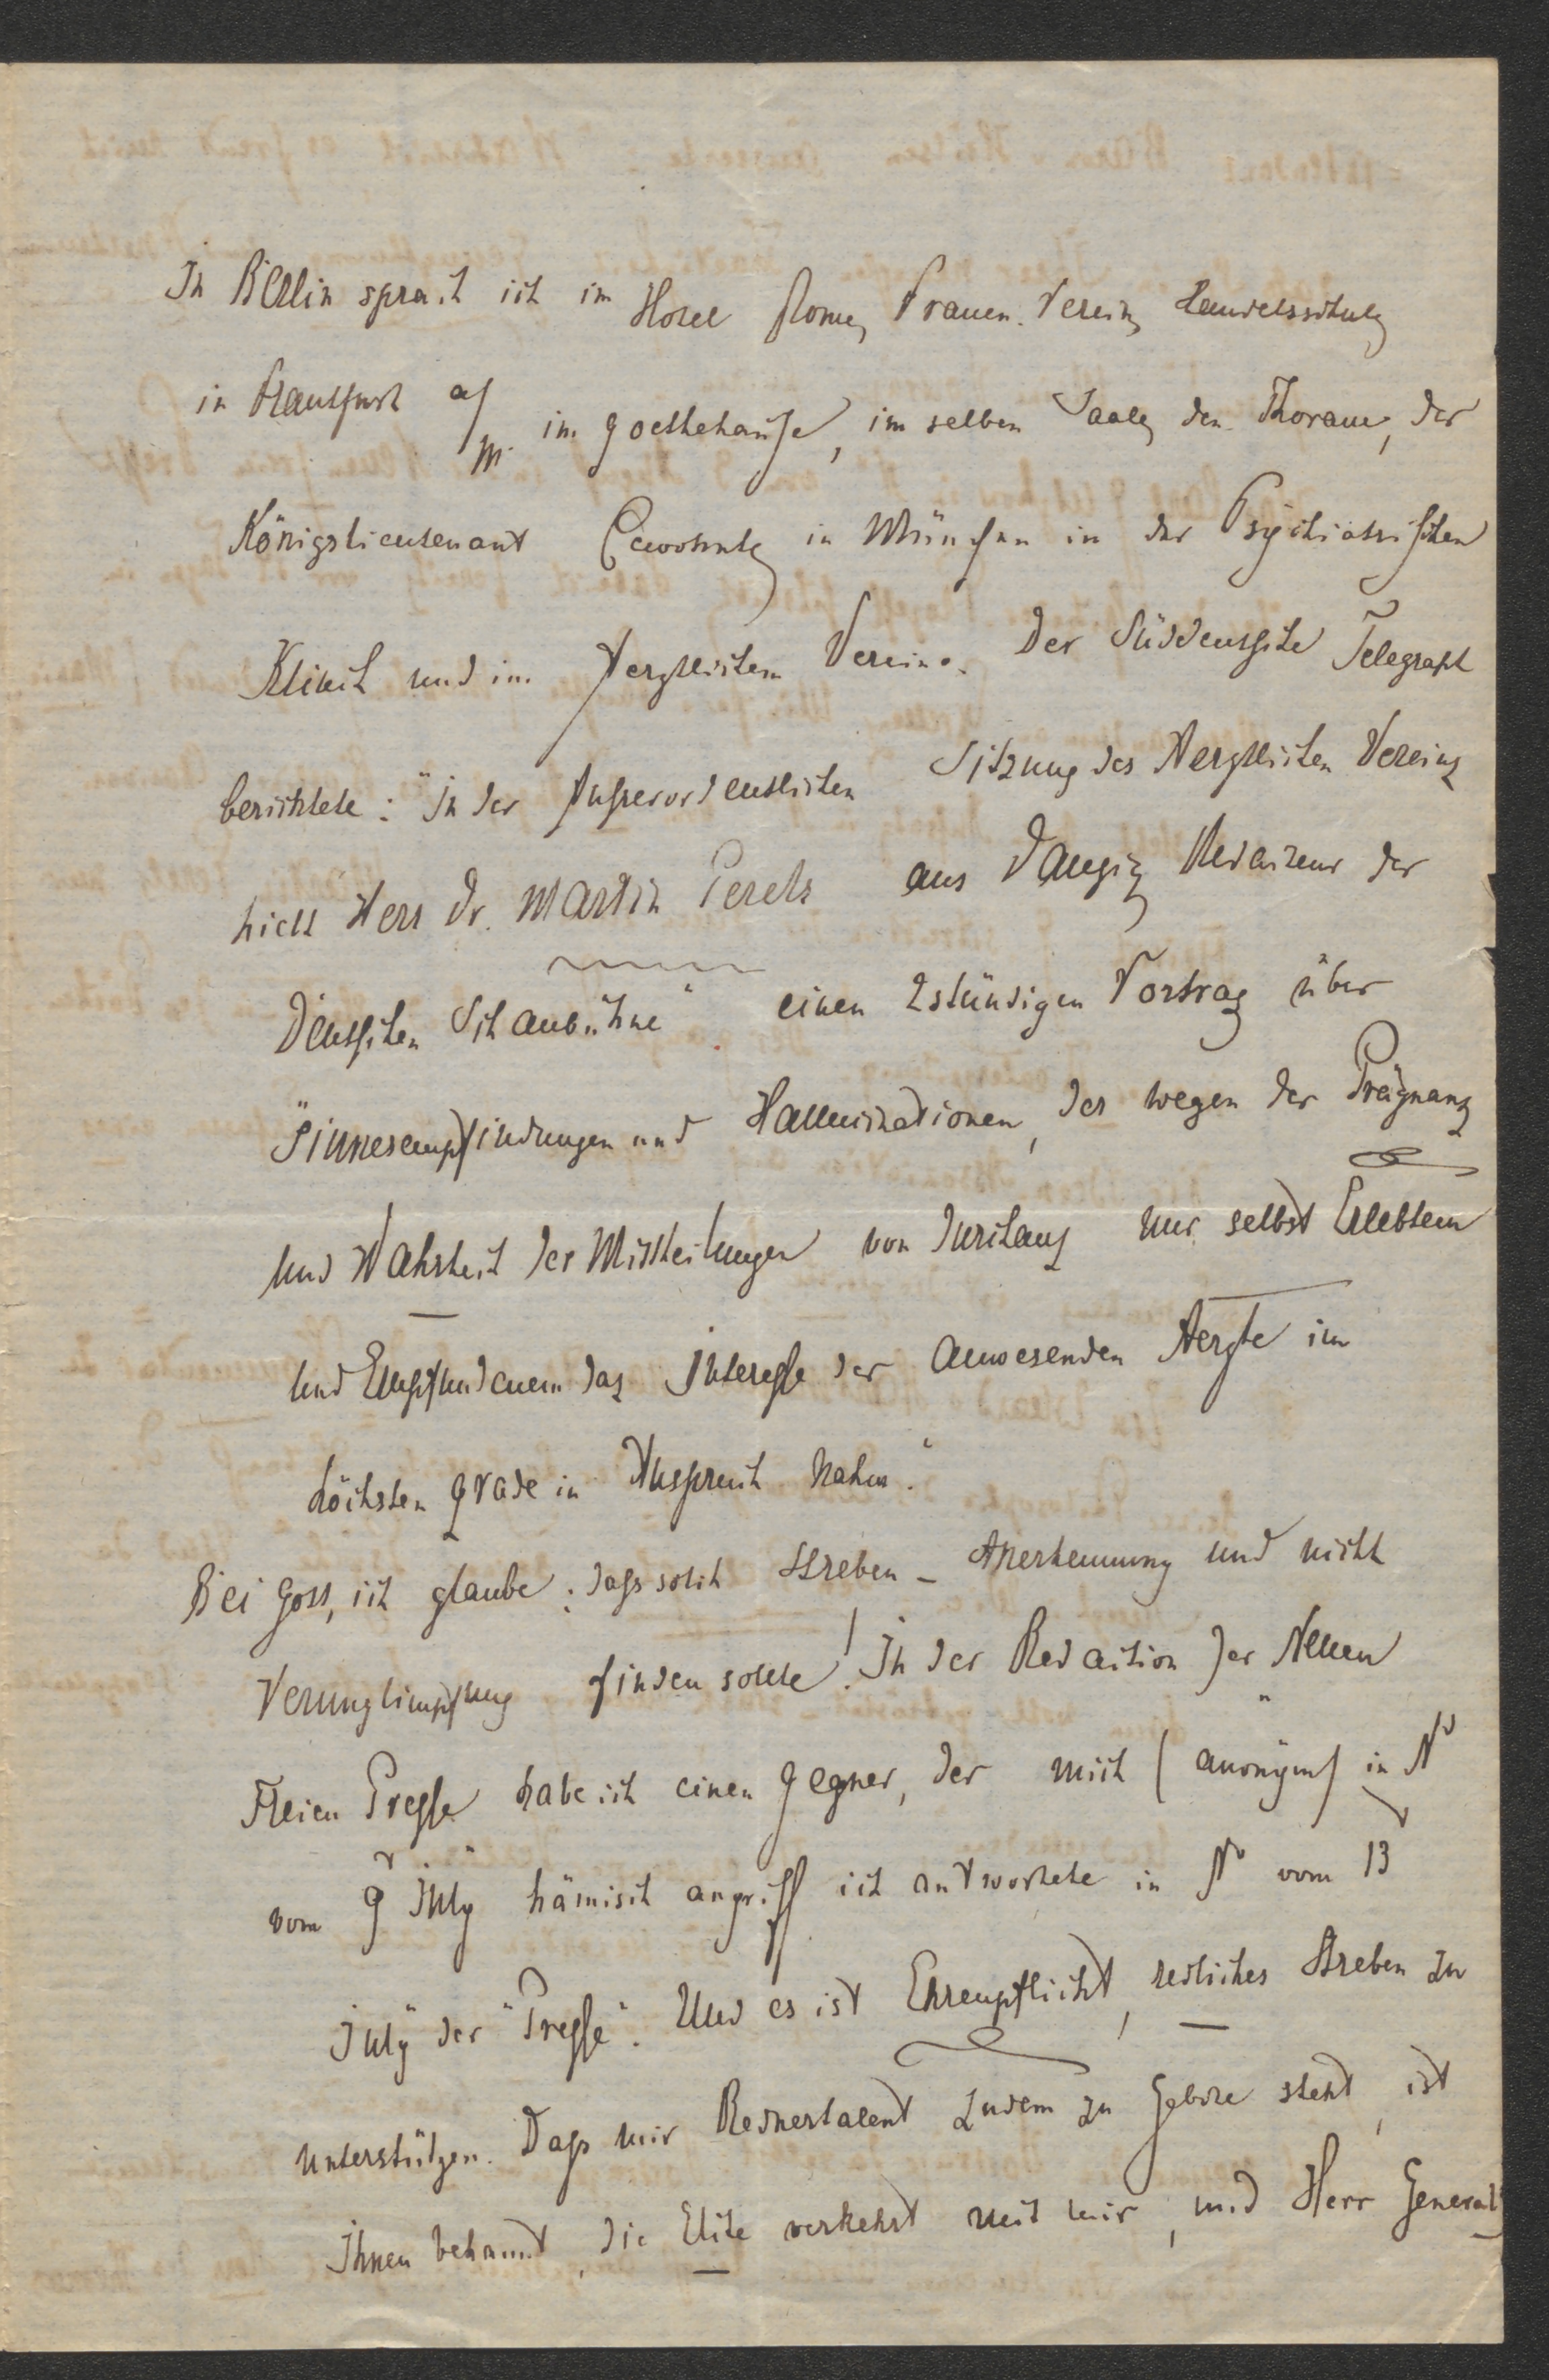 In Berlin sprach ich im Hotel Rome, Frauen-Verein, Handelsschule,
in Frankfurt a/M. im Goethehause, im selben Saale, den Thorane, der
Königslieutenant bewohnte, in München in der Psychiatrischen
Klinik und im Aerztlichen Verein. Der Süddeutsche Telegraph
berichtete: "In der Außerordentlichen Sitzung des Aerztlichen Vereins
hielt Herr Dr. Martin Perels aus Danzig, Redacteur der
Deutschen Schaubühne" einen 2stündigen Vortrag über
"Sinnesempfindungen und Hallucinationen, der wegen der Prägnanz
und Wahrheit der Mittheilungen von durchaus nur selbst Erlebtem
und Empfundenem das Interesse der anwesenden Aerzte im
höchsten Grade in Anspruch nahm."
Bei Gott, ich glaube: dass solch Streben – Anerkennung und nicht
Verunglimpfung finden sollte! In der Redaction der "Neuen
Freien Presse" habe ich einen Gegner, der mich (anonym) in No
vom 9 July hämisch angriff ich antwortete in No vom 13
July der "Presse". Und es ist Ehrenpflicht, redliches Streben zu
unterstützen. Dass mir Rednertalent zudem zu Gebote steht, ist
Ihnen bekannt, die Elite verkehrt mit mir, und Herr General